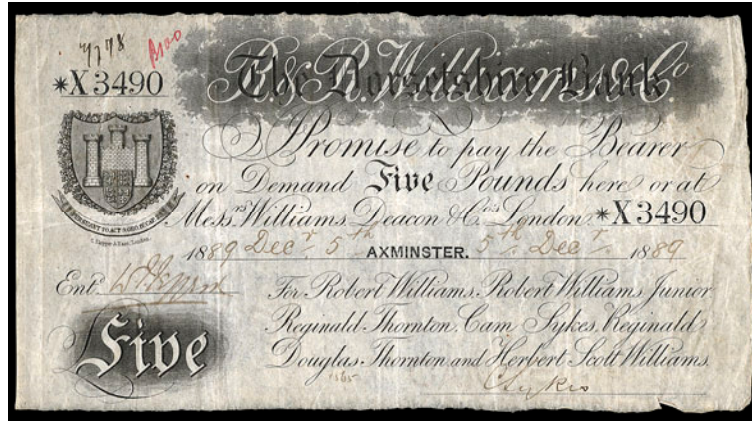 7778 B100
*X3490
R. & R. Williams & Co.
The Dorsetshire Bank
Promise to pay the Bearer
on Demand Five Pounds here or at
Messrs. Williams, Deacon & Co's London *X3490
1889 Decr 5th AXMINSTER. 5th Decr 1889
Entd
For Robert Williams, Robert Williams Junior
Reginald Thornton, Cam Sykes, Reginald
Douglas Thornton and Herbert Scott Williams.
Five
CSykes